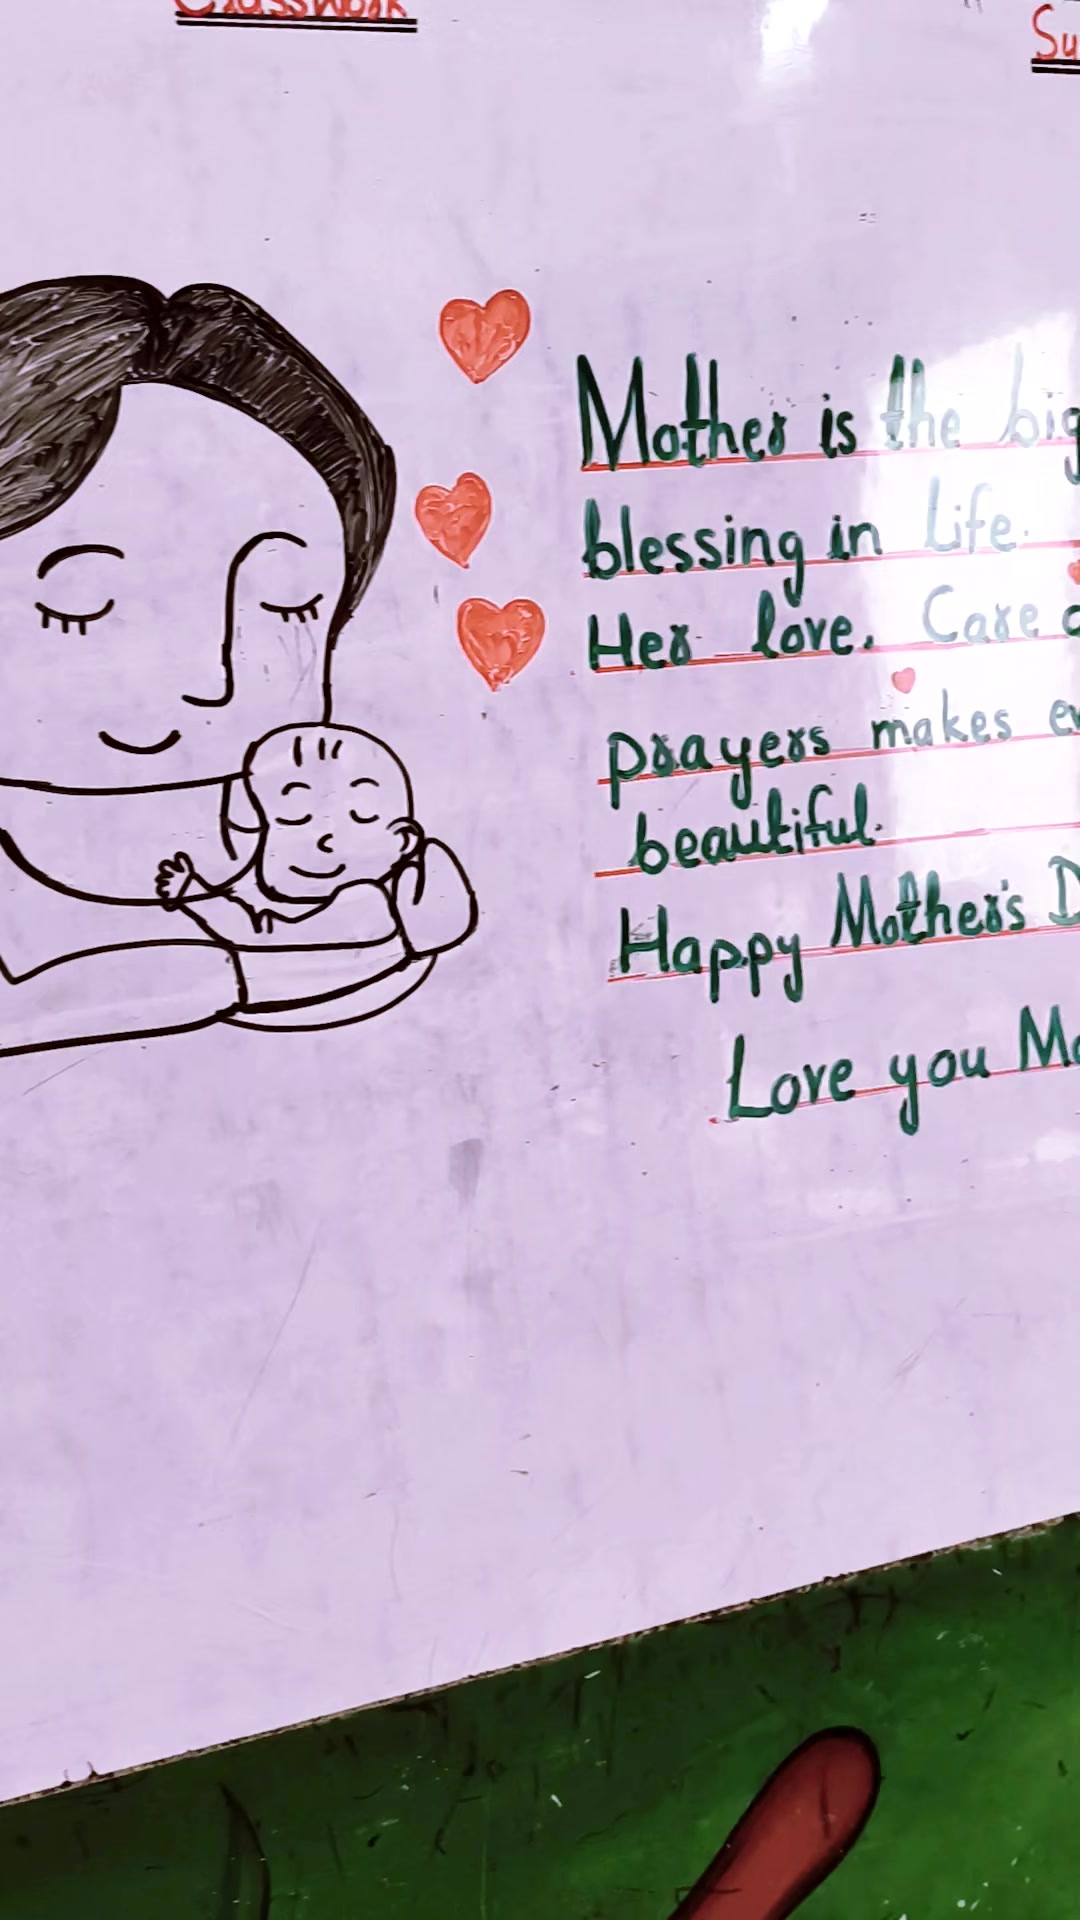 Classwork
Su
Mother is the big
blessing in Life.
Her love. Care
prayers makes ev
beautiful.
Happy Mother's D
Love you Mo